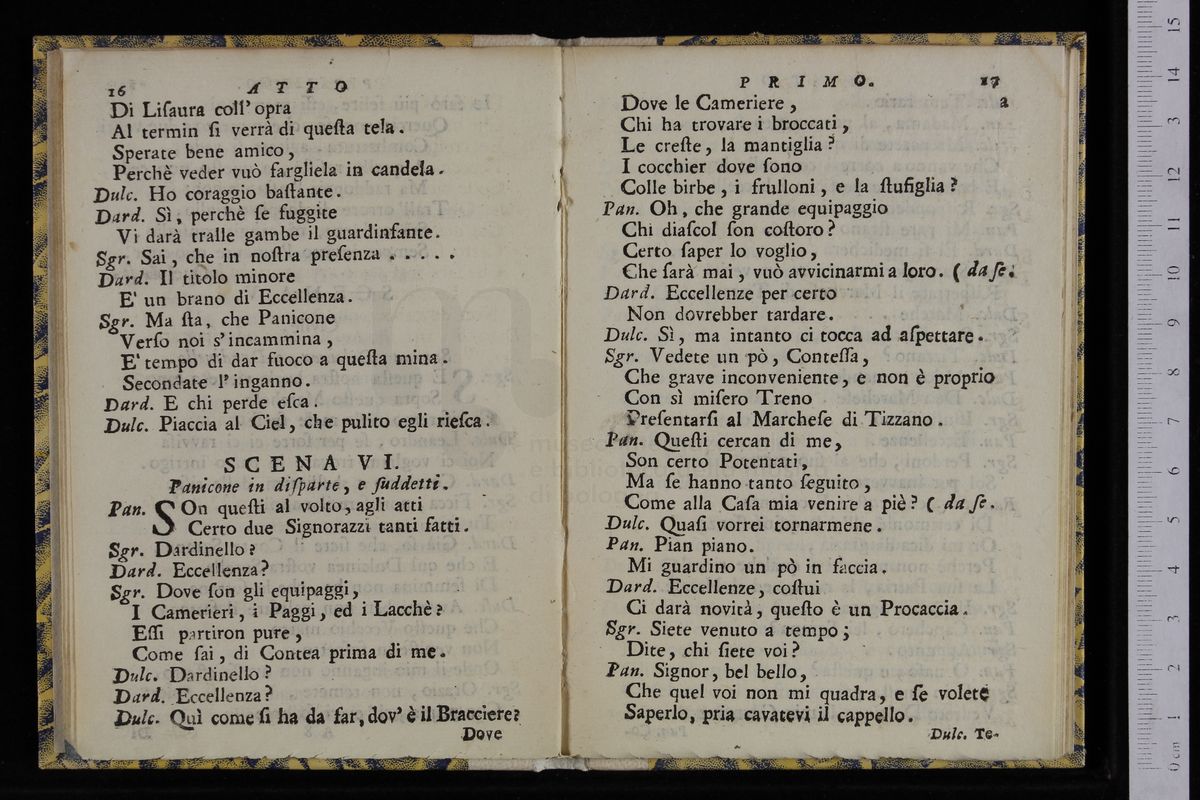 16 A T T O
Di Liſaura coll' opra
Al termin ſi verrà di queſta tela.
Sperate bene amico,
Perchè veder vuò fargliela in candela.
Dulc. Ho coraggio baſtante.
Dard. Sì, perchè ſe fuggite
Vi darà tralle gambe il guardinfante.
Sgr. Sai, che in noſtra preſenza . . . . .
Dard. Il titolo minore
E' un brano di Eccellenza.
Sgr. Ma ſta, che Panicone
Verſo noi s' incammina,
E' tempo di dar fuoco a queſta mina.
Secondate l' inganno.
Dard. E chi perde eſca.
Dulc. Piaccia al Ciel, che pulito egli rieſca.
S C E N A VI.
Panicone in diſparte, e ſuddetti.
Pan. SOn queſti al volto, agli atti
Certo due Signorazzi tanti fatti.
Sgr. Dardinello?
Dard. Eccellenza?
Sgr. Dove ſon gli equipaggi,
I Camerieri, i Paggi, ed i Lacchè?
Eſſi partiron pure,
Come ſai, di Contea prima di me.
Dulc. Dardinello?
Dard. Eccellenza?
Dulc. Quì come ſi ha da far, dov' è il Bracciere?
Dove
P R I M O. 17
Dove le Cameriere, a
Chi ha trovare i broccati,
Le creſte, la mantiglia?
I cocchier dove ſono
Colle birbe, i frulloni, e la ſtufiglia?
Pan. Oh, che grande equipaggio
Chi diaſcol ſon coſtoro?
Certo ſaper lo voglio,
Che ſarà mai, vuò avvicinarmi a loro. ( da ſe.
Dard. Eccellenze per certo
Non dovrebber tardare.
Dulc. Sì, ma intanto ci tocca ad aſpettare.
Sgr. Vedete un pò, Conteſſa,
Che grave inconveniente, e non è proprio
Con sì miſero Treno
Preſentarſi al Marcheſe di Tizzano.
Pan. Queſti cercan di me,
Son certo Potentati,
Ma ſe hanno tanto ſeguito,
Come alla Caſa mia venire a piè? ( da ſe.
Dulc. Quaſi vorrei tornarmene.
Pan. Pian piano.
Mi guardino un pò in faccia.
Dard. Eccellenze, coſtui
Ci darà novità, queſto è un Procaccia.
Sgr. Siete venuto a tempo;
Dite, chi ſiete voi?
Pan. Signor, bel bello,
Che quel voi non mi quadra, e ſe volete
Saperlo, pria cavatevi il cappello.
Dulc. Te-